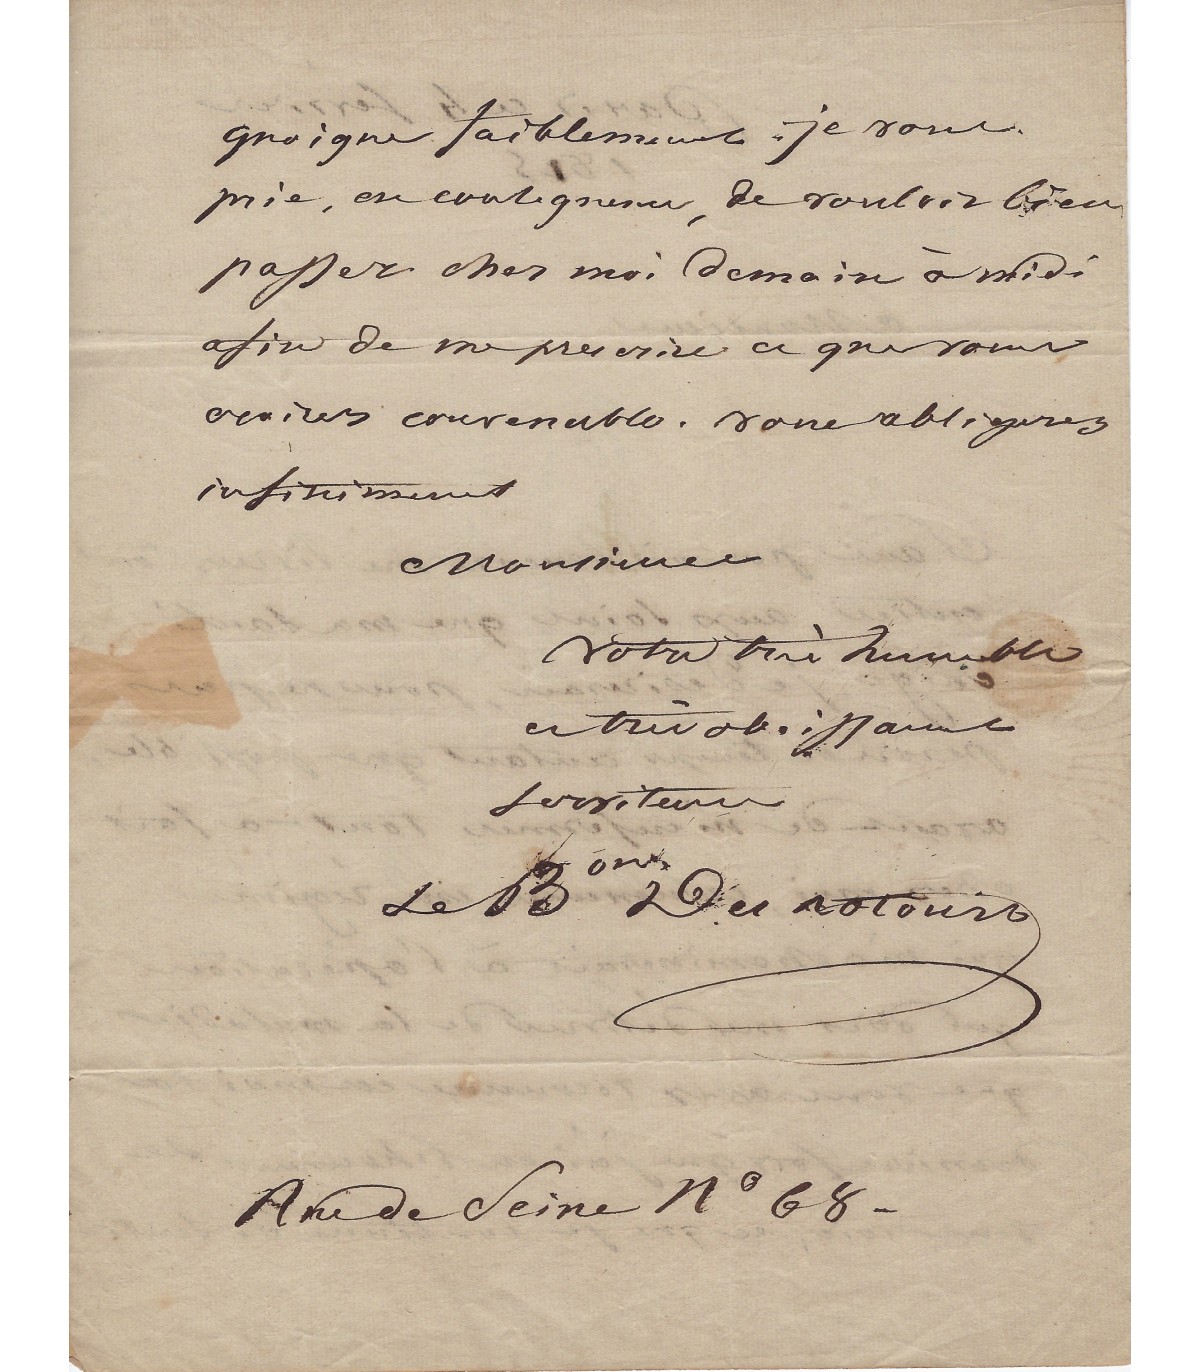 quoique faiblement. je vous
prie, en conséquence, de vouloir bien
passer chez moi demain à midi
afin de me prescrire ce que vous
croirez convenable. vous obligerez
infiniment
Monsieur
votre très humble
et très obéissant
serviteur
Le Bon Des Rotours
Rue de Seine N° 68 -